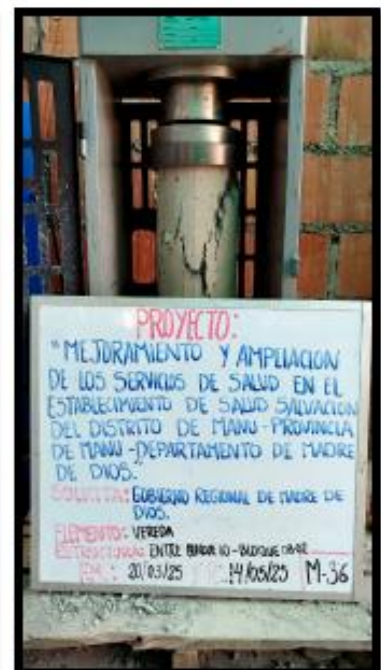 PROYECTO:
"MEJORAMIENTO Y AMPLIACION
DE LOS SERVICIOS DE SALUD EN EL
ESTABLECIMIENTO DE SALUD SALVACION
DEL DISTRITO DE MANU-PROVINCIA
DE MANU-DEPARTAMENTO DE MADRE
DE DIOS.
SOLICITA: GOBIERNO REGIONAL DE MADRE DE
DIOS.
ELEMENTO: VEREDA
ESTRUCTURA: ENTRE
20/03/25 14/05/25 M-36